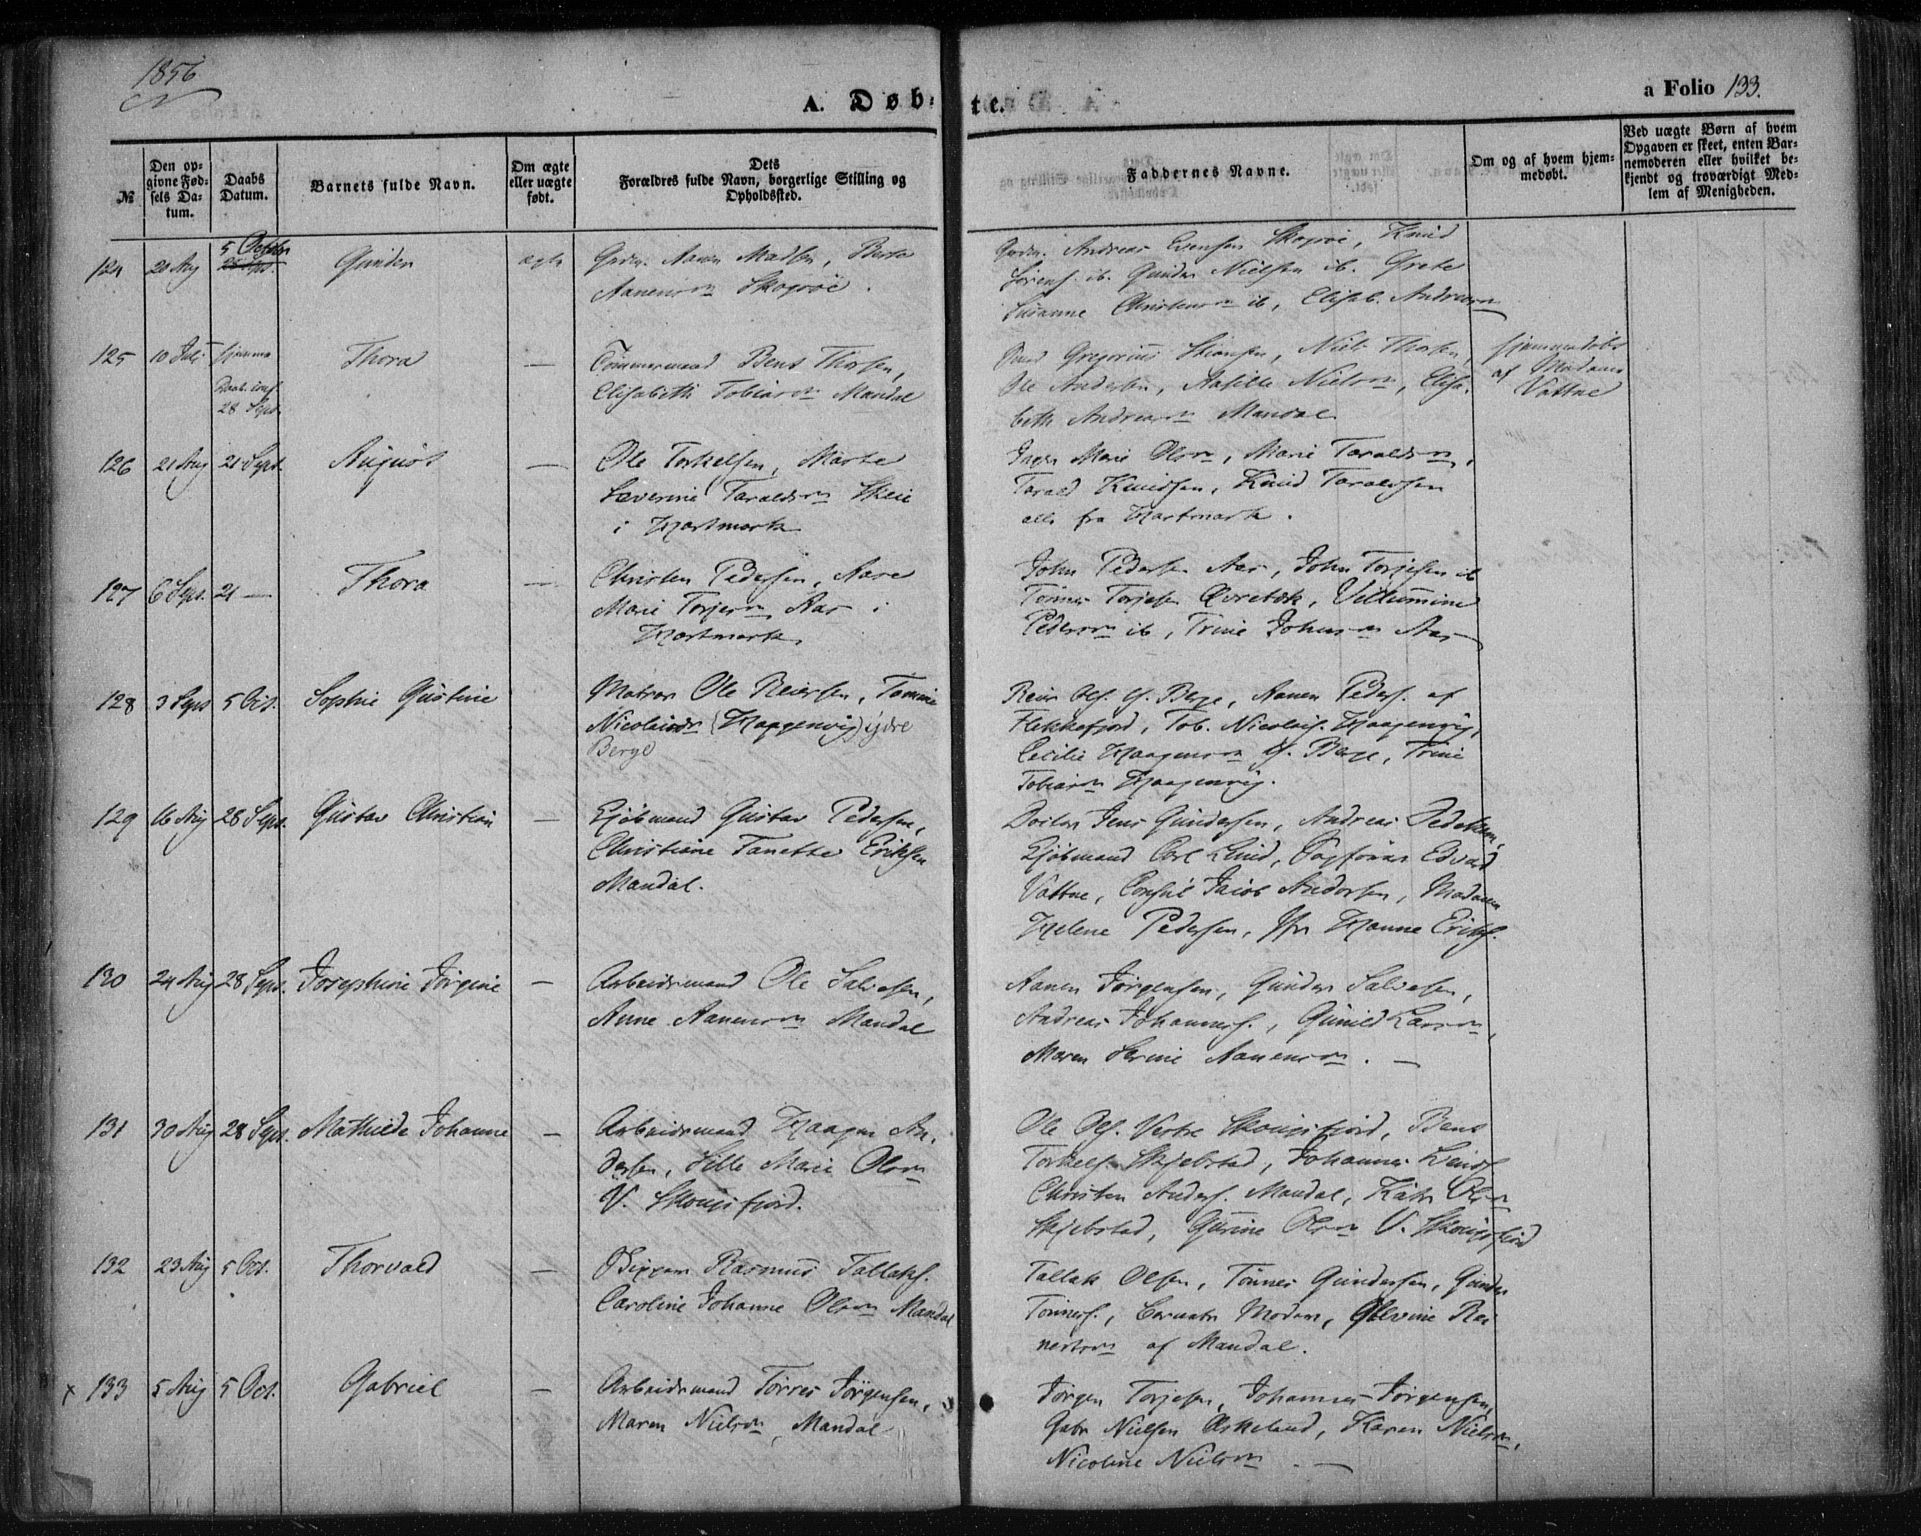 1856
A. Døbte.
a Folio 133.
№
Den opgivne Fødsels Datum.
Daabs Datum.
Barnets fulde Navn.
Om ægte eller uægte født.
Dets Forældres fulde Navn, borgerlige Stilling og Opholdssted.
Faddernes Navne.
Om og af hvem hjemmedøbt.
Ved uægte Børn af hvem Opgaven er skeet, enten Barnemoderen eller hvilket bekjendt og troværdigt Medlem af Menigheden.
124 20 Aug 5 October Gunder ægte
Aanen Madsen, Berte
Aanensn Skogsøe.
Andreas Evensen Skogsøe, Knud
Sørens. ib. Gunder Nielsen ib. Grete
Susanne Christensn ib, Elisab. Andreasn
125 10 Juli hjemme Daab conf. 28 Sept. Thora —
Tømmermand Bent Thorsen,
Elisabeth Tobiasn Mandal
Gregorius Stiansen, Niels Thorsen,
Ole Andersen, Aasille Nielsn, Elisa-
beth Andreasn Mandal
hjemmedøbt
af Madam
Vattne
126 21 Aug 21 Sept. August —
Ole Torkelsen, Marte
Severine Taraldsn Skeie
i Hartmark
Inger Marie Olsn, Marie Taraldsn,
Tarald Knudsen, Knud Taraldsen
alle fra Hartmark.
127 6 Sept. 21 — Thora —
Christen Pedersen, Aase
Marie Torjesn Aas i
Hartmark
John Pedersen Aas, John Torjesen ib
Tønnes Torjesen Øvretok, Villumine
Pedersn ib, Trine Johnsn Aas
128 3 Sept 5 Oct. Sophie Gustine —
Matros Ole Reiersen, Tomine
Nicolaisdn (Haagenvig) ydre
Berge
Reier Ols. y. Berge, Aanen Peders. af
Flekkefjord, Tob. Nicolais. Haagenvig,
Cecilie Haagensn y. Berge, Trine
Tobiasn Haagenvig.
129 16 Aug 28 Sept. Gustav Christian —
Kjøbmand Gustav Pedersen,
Christiane Tanette Eriksen
Mandal.
Doctor Jens Gundersen, Andreas Pedersen,
Kjøbmand Carl Lund, Edvard
Vattne, Consul Jacob Andersen, Madam
Helene Pedersen, Jfr Hanne Eriks.
130 24 Aug 28 Sept. Josephine Jørgine —
Arbeidsmand Ole Salvesen,
Anne Aanensn Mandal
Aanen Jørgensen, Gunder Salvesen,
Andreas Johannes., Gunild Larsn,
Maren Serine Aanensn. —
131 30 Aug 28 Sept. Mathilde Johanne —
Arbeidsmand Haagen An-
dersen, Sille Marie Olsn
V. Skougsfjord.
Ole Ols. Vestre Skougsfjord, Bent
Torkels. Skjebstad, Johannes Knuds
Christen Anders. Mandal, Olsn
Skjebstad, Gurine Olsn V. Skougsfjord
132 23 Aug 5 Oct. Thorvald —
Rasmus Tallaks.
Caroline Johanne Olsn Mandal
Tallak Olsen, Tønnes Gundersen, Gunder
Tønnes., Barnets Moder, Olevine
af Mandal.
x 133 5 Aug 5 Oct. Gabriel —
Arbeidsmand Torres Jørgensen,
Maren Nielsn, Mandal
Jørgen Torjesen, Johannes Jørgensen,
Gabr Nielsen Askeland, Karen Nielsn,
Nicoline Nielsn. —